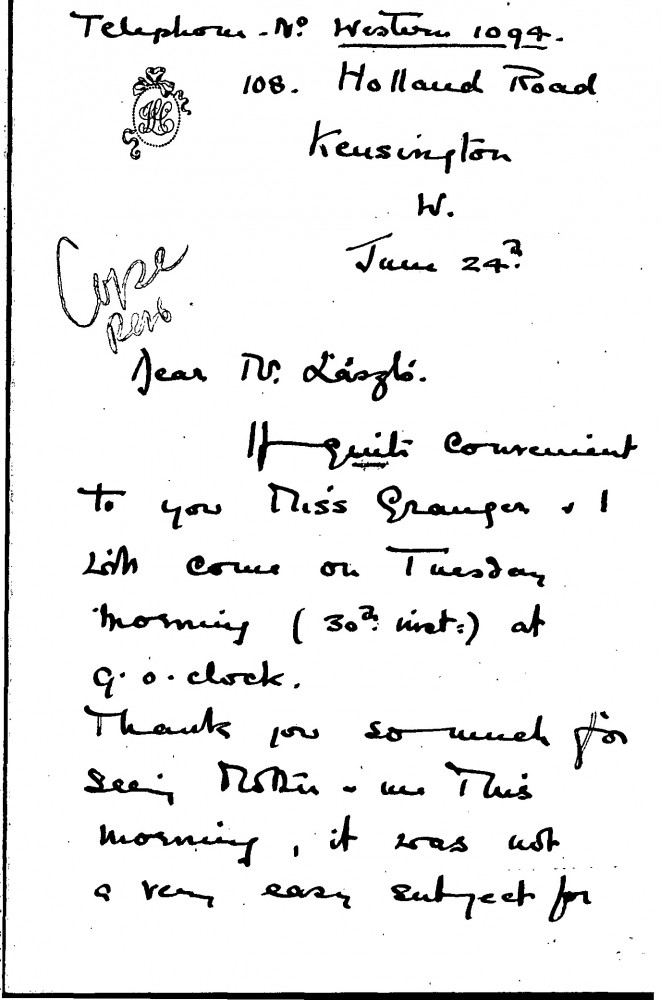 Telephone - No Western 1094.
108. Holland Road
Kensington
W.
June 24th.
Cope
Dear Mr. László.
If quite convenient
to you Miss Granger & I
will come on Tuesday
morning (30th: inst:) at
9.o.clock.
Thank you so much for
seeing Mother & me this
morning, it was not
a very easy subject for